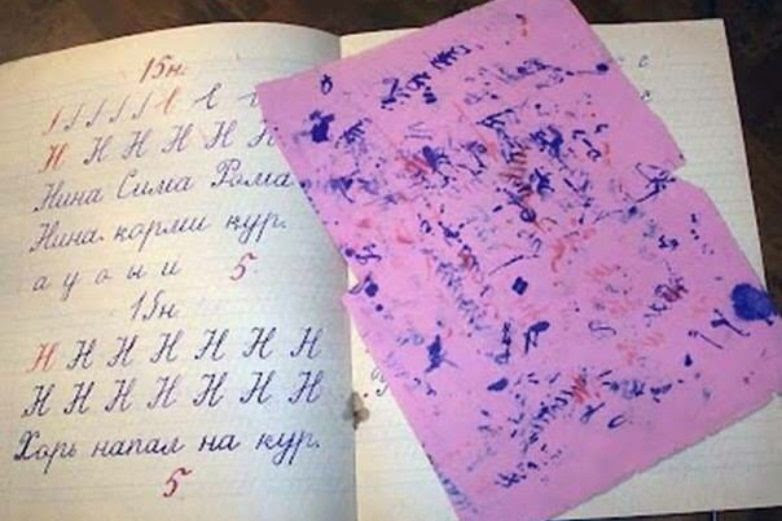 15н.
Н Н Н Н Н Н
Нина Сима Рома
Нина корми кур.
а у о ы и 5
15н
Н Н Н Н Н Н Н
Н Н Н Н Н Н Н
Хорь напал на кур.
5
с
с